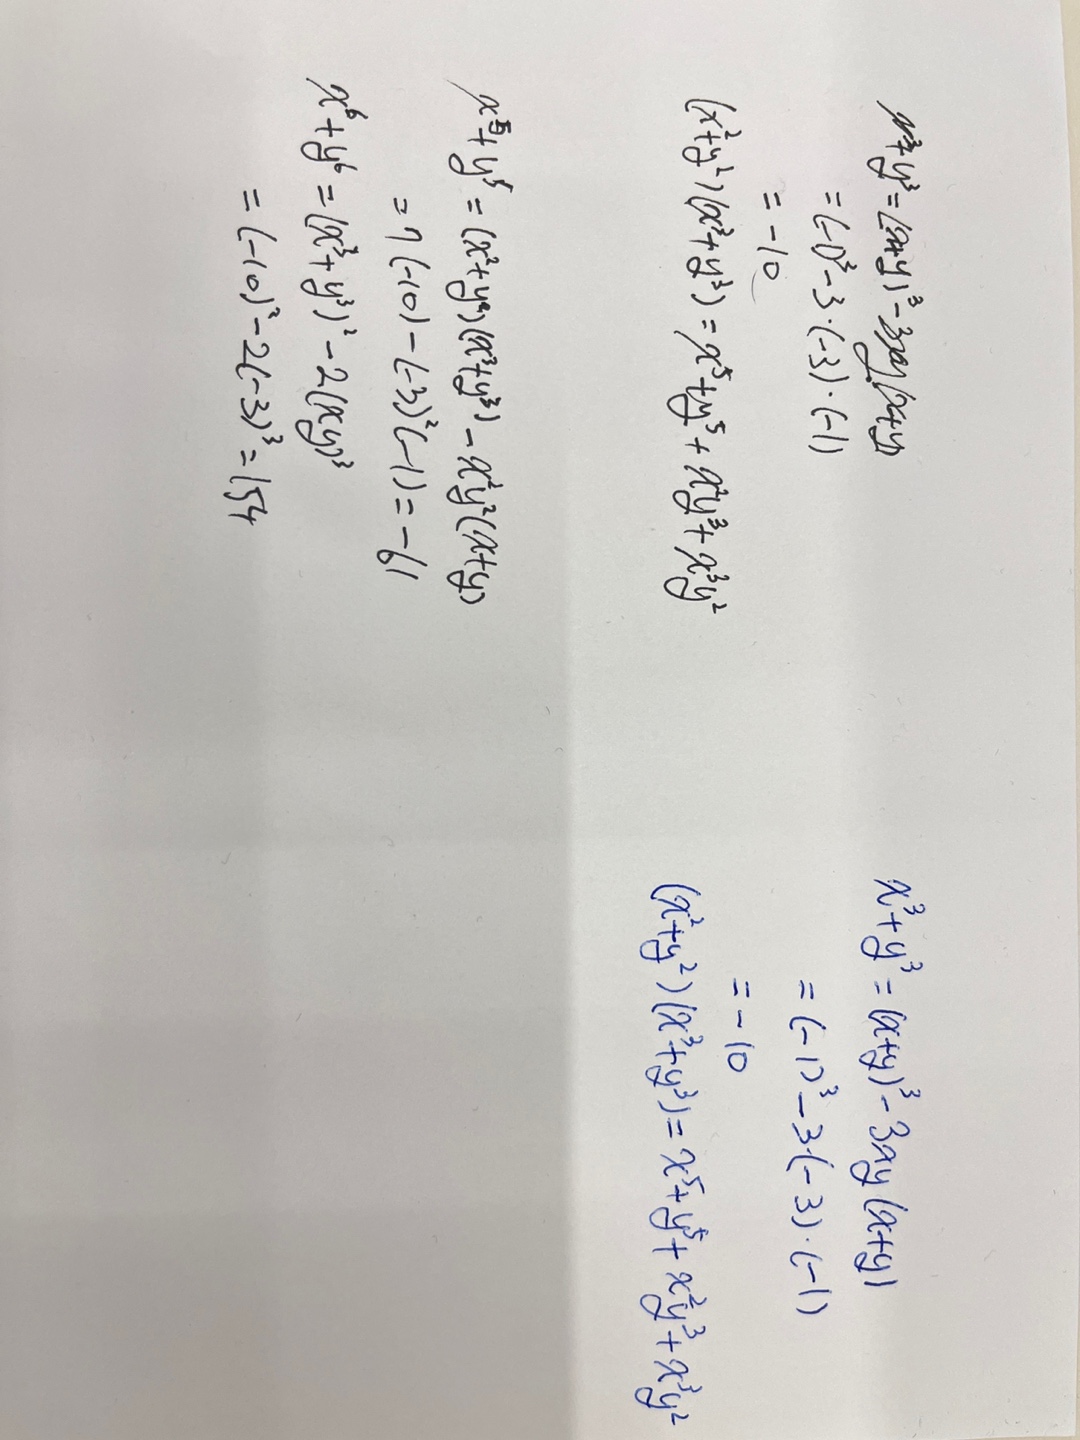 x³+y³=(x+y)³-3xy(x+y)
=(-1)³-3·(-3)·(-1)
=-10
(x²+y²)(x³+y³)=x⁵+y⁵+x²y³+x³y²
x⁵+y⁵=(x²+y²)(x³+y³)-x²y²(x+y)
=7(-10)-(-3)²(-1)=-61
x⁶+y⁶=(x³+y³)²-2(xy)³
=(-10)²-2(-3)³=154
x³+y³=(x+y)³-3xy(x+y)
=(-1)³-3·(-3)·(-1)
=-10
(x²+y²)(x³+y³)=x⁵+y⁵+x²y³+x³y²